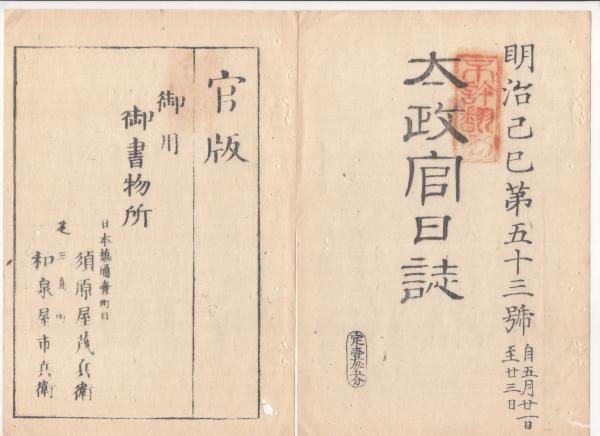 明治己巳第五十三號
自五月廿一日
至廿三日
太政官日誌
官版
御用
御書物所
日本橋通壹町目
須原屋茂兵衛
芝三島町
和泉屋市兵衛